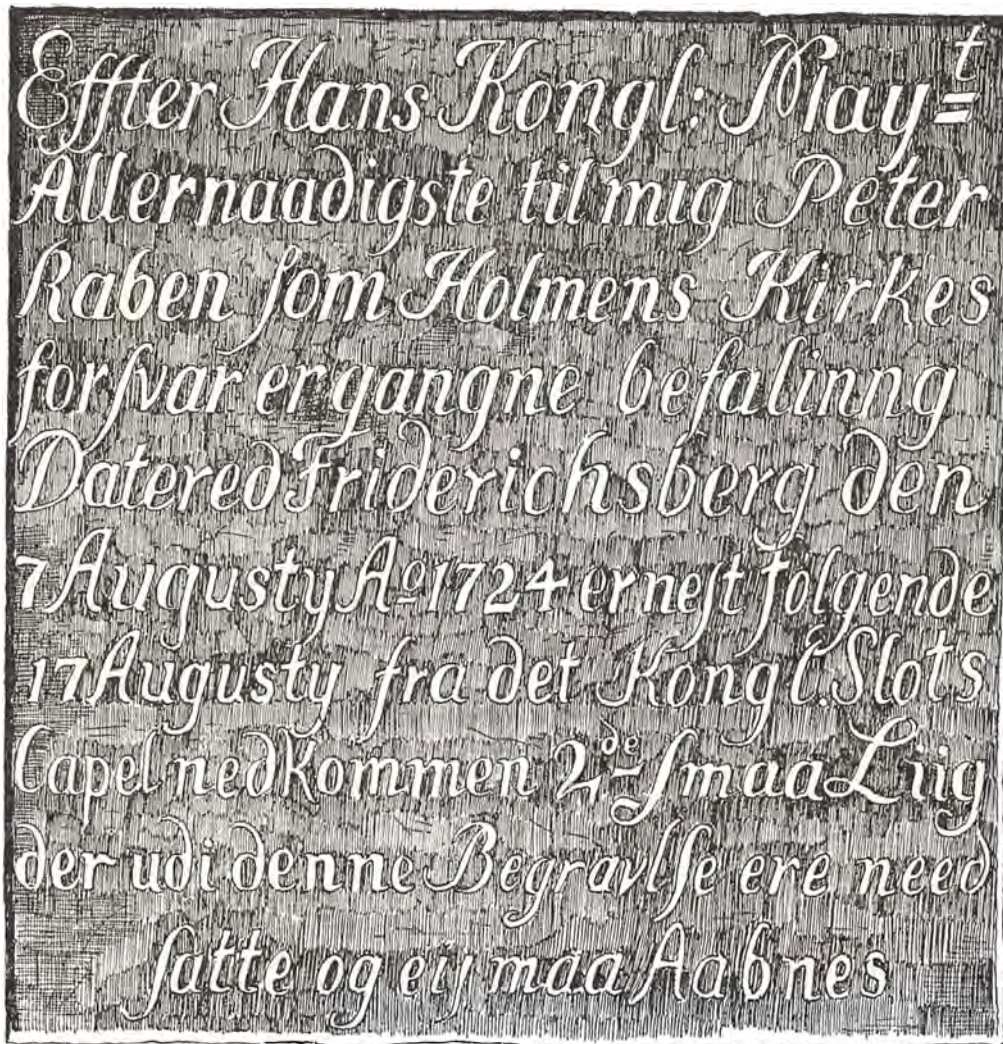 Effter Hans Kongl: May=t
Allernaadigste til mig Peter
Raben ſom Holmens Kirkes
forſvar er gangne befalinng
Datered Friderichsberg den
7 Augusty Aº 1724 er neſt folgende
17 Augusty fra det Kongl: Slots
Capel nedkommen 2de ſmaa Liig
der udi denne Begravlſe ere need
ſatte og eij maa Aabnes